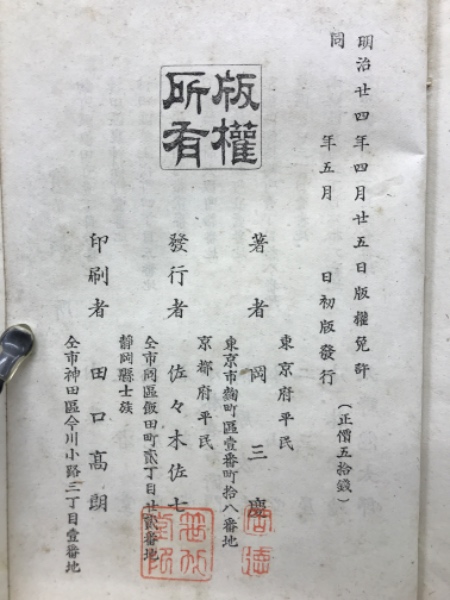 明治廿四年四月廿五日版權免許
同　年五月　日初版發行
(正價五拾錢)
版權
所有
東京府平民
著者　岡三慶
東京市麴町區壹番町拾八番地
京都府平民
發行者　佐々木佐七
仝市同區飯田町貳丁目廿貳番地
靜岡縣士族
印刷者　田口高朗
仝市神田區今川小路二丁目壹番地